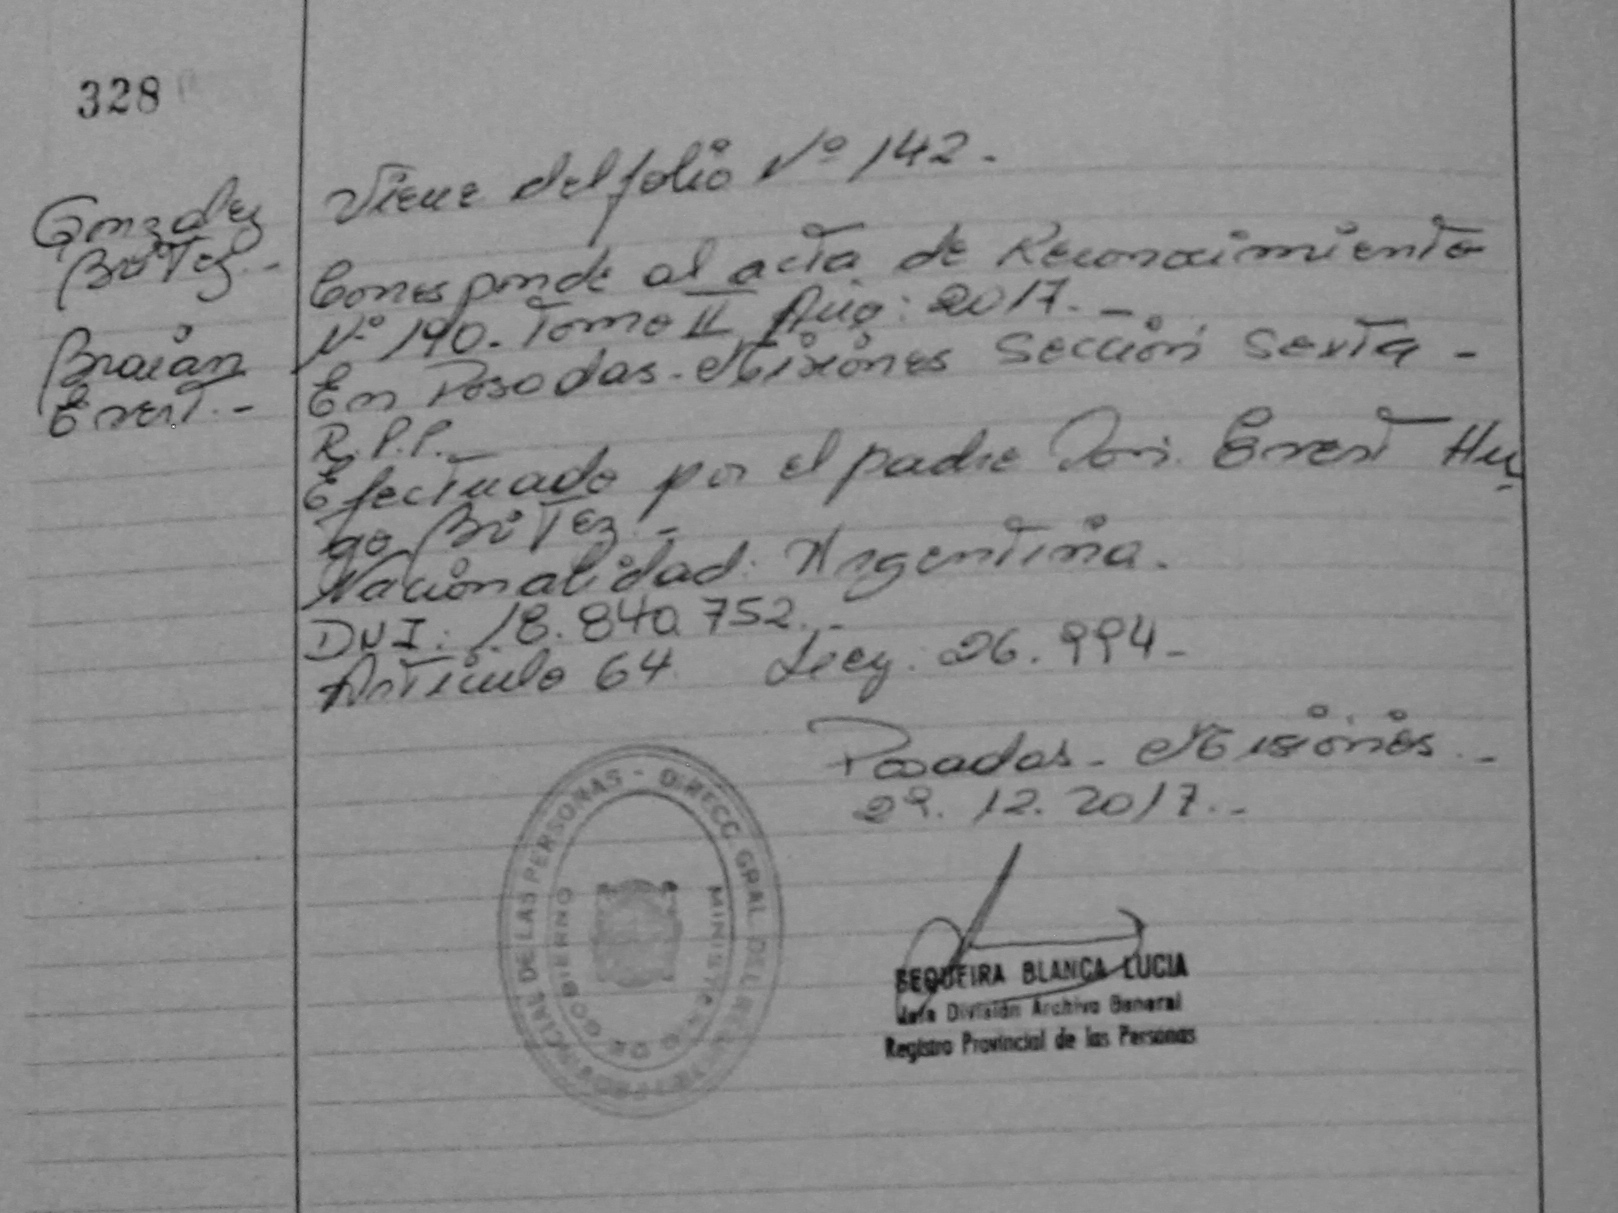 328
Viene del folio Nº 142.-
Gonzalez
Britez.-
Braian
Evert.-
Corresponde al acta de Reconocimiento
Nº 190. Tomo II Año: 2017.-
En Posadas-Misiones Sección Sexta-
R.P.P.
Efectuado por el padre Don. Evert Hu
go Britez.-
Nacionalidad: Argentina.
DNI: 18.840.752.-
Articulo 64. Ley: 26.994-
Posadas-Misiones.-
29.12.2017.-
DIRECC. GRAL. DEL REGISTRO PROVINCIAL DE LAS PERSONAS -
MINISTERIO DE GOBIERNO
SEQUEIRA BLANCA LUCIA
Jefe División Archivo General
Registro Provincial de las Personas